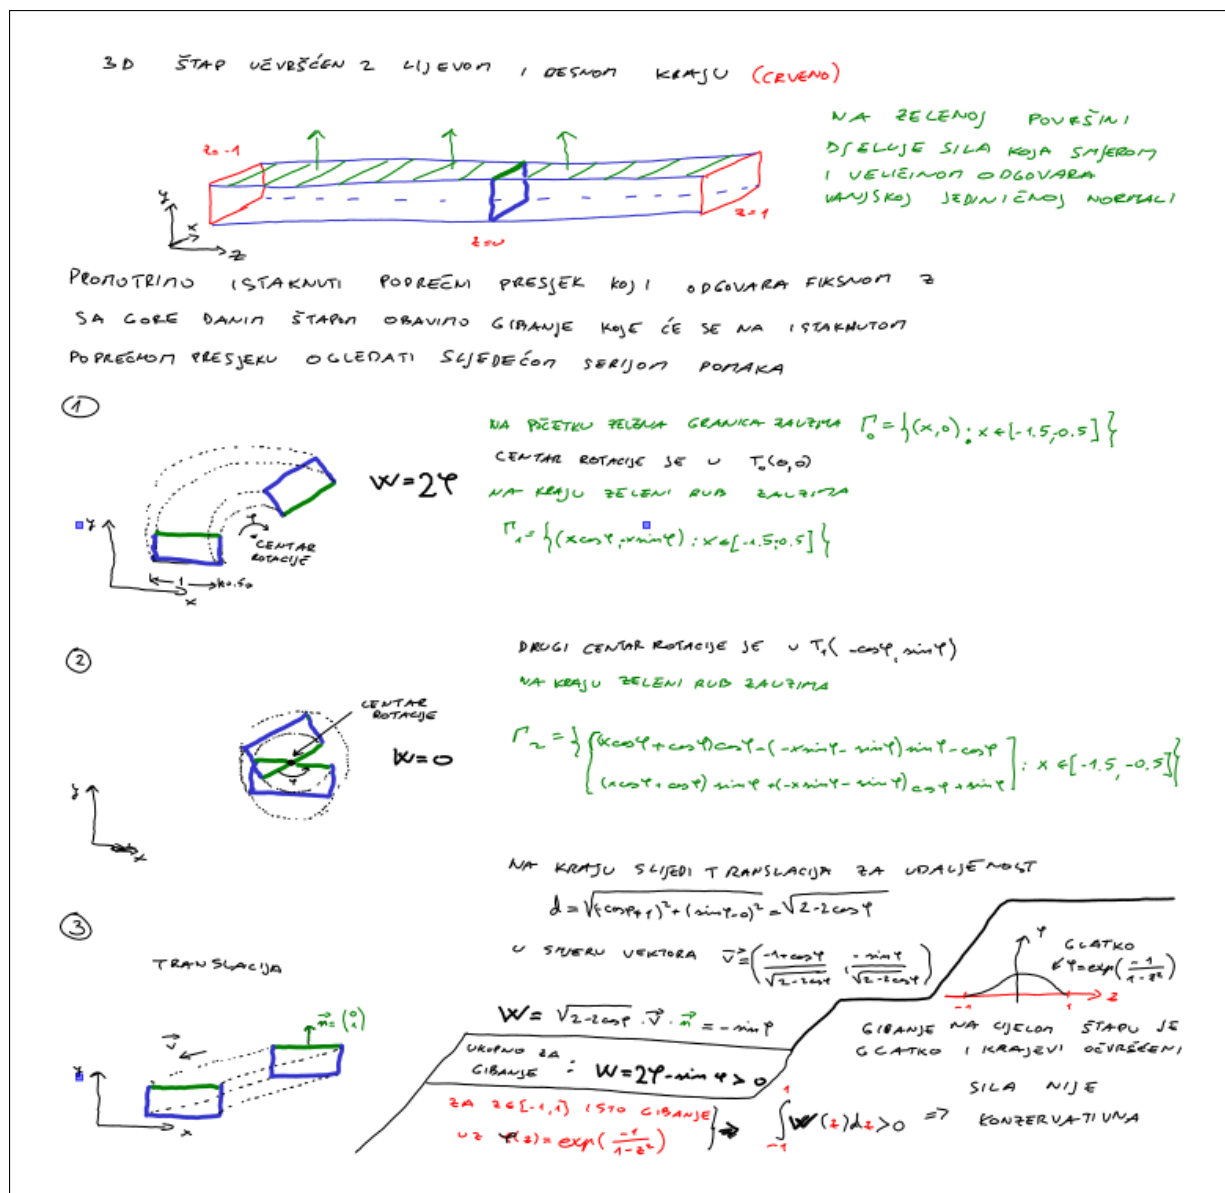 3D ŠTAP UČVRŠĆEN Z LIJEVOM I DESNOM KRAJU (CRVENO)
NA ZELENOJ POVRŠINI
DJELUJE SILA KOJA SMJEROM
I VELIČINOM ODGOVARA
VANJSKOJ JEDINIČNOJ NORMALI
z=-1
y
x
z
z=0
z=1
PROMOTRIMO ISTAKNUTI POPREČNI PRESJEK KOJI ODGOVARA FIKSNOM Z
SA GORE DANIM ŠTAPOM OBAVIMO GIBANJE KOJE ĆE SE NA ISTAKNUTOM
POPREČNOM PRESJEKU OGLEDATI SLJEDEĆOM SERIJOM POMAKA
1
NA POČETKU ZELENA GRANICA ZAUZIMA Γ₀={(x,0): x∈[-1.5,-0.5]}
CENTAR ROTACIJE JE U T₀(0,0)
W=2φ
NA KRAJU ZELENI RUB ZAUZIMA
Γ₁={(xcosφ,-xsinφ): x∈[-1.5,-0.5]}
y
φ
CENTAR
ROTACIJE
1
0.5
x
2
DRUGI CENTAR ROTACIJE JE U T₁(-cosφ, sinφ)
NA KRAJU ZELENI RUB ZAUZIMA
CENTAR
ROTACIJE
W=0
φ
Γ₂={[(xcosφ+cosφ)cosφ-(-xsinφ-sinφ)sinφ-cosφ
(xcosφ+cosφ)sinφ+(-xsinφ-sinφ)cosφ+sinφ]: x∈[-1.5,-0.5]}
y
x
NA KRAJU SLIJEDI TRANSLACIJA ZA UDALJENOST
d=√((-cosφ+1)²+(sinφ-0)²)=√(2-2cosφ)
3
TRANSLACIJA
U SMJERU VEKTORA v⃗=((-1+cosφ)/√(2-2cosφ), -sinφ/√(2-2cosφ))
φ
GLATKO
φ=exp(-1/(1-z²))
-1
1
z
n⃗=(0 1)
v⃗
y
x
W=√(2-2cosφ)·v⃗·n⃗=-sinφ
UKUPNO ZA
GIBANJE : W=2φ-sinφ>0
GIBANJE NA CIJELOM ŠTAPU JE
GLATKO I KRAJEVI UČVRŠĆENI
ZA z∈[-1,1] ISTO GIBANJE
UZ φ(z)=exp(-1/(1-z²))
} ⇒ ∫₋₁¹ W(z)dz>0 ⇒
SILA NIJE
KONZERVATIVNA